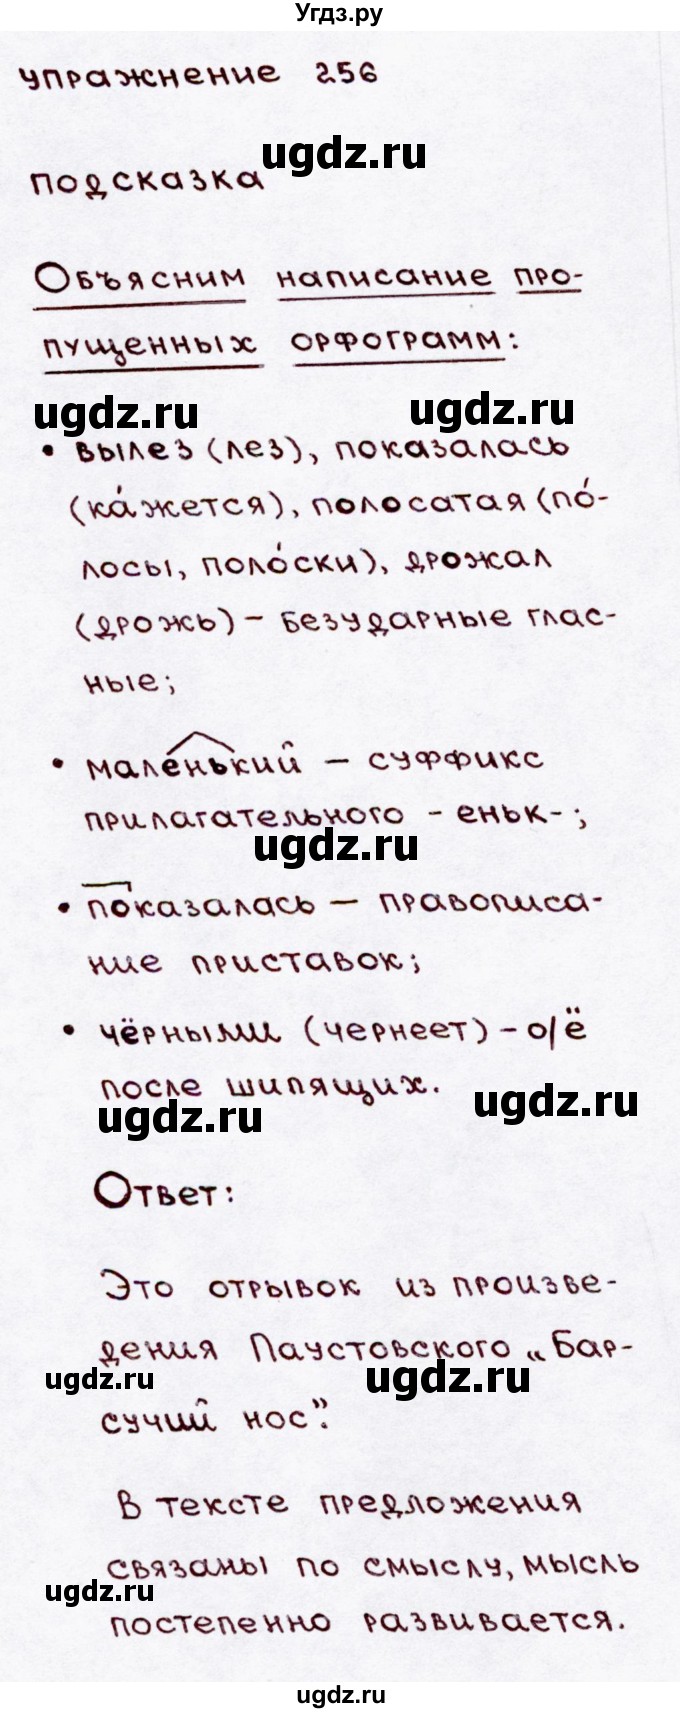 Угдз.ру
упражнение 256
ugdz.ru
подсказка
Объясним написание про-
пущенных орфограмм:
ugdz.ru ugdz.ru
• вылез (лез), показалась
(ка́жется), полосатая (по́-
лосы, поло́ски), дрожал
(дрожь) – безударные глас-
ные;
• маленький – суффикс
прилагательного -еньк-;
ugdz.ru
• показалась – правописа-
ние приставок;
• чёрными (чернеет) – о/ё
после шипящих.
ugdz.ru ugdz.ru
Ответ:
Это отрывок из произве-
дения Паустовского „Бар-
ugdz.ru ugdz.ru
сучий нос”.
В тексте предложения
связаны по смыслу, мысль
ugdz.ru
постепенно развивается.
ugdz.ru